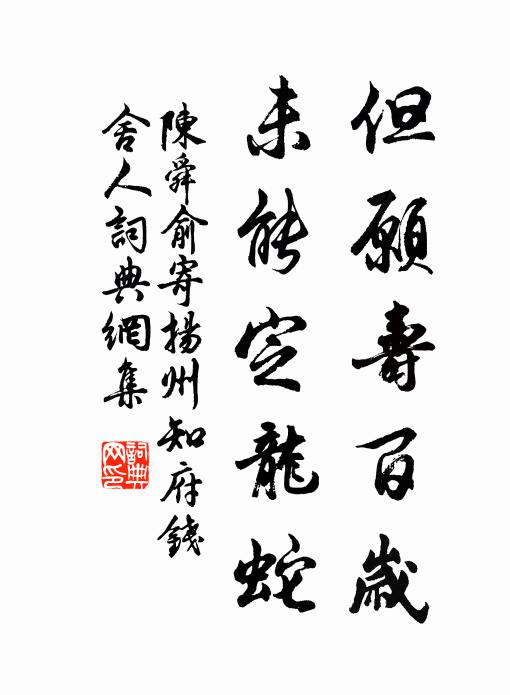 但願壽百歲
未能定龍蛇
陳舜俞寄揚州知府錢
舍人詞典網集
詞典网印